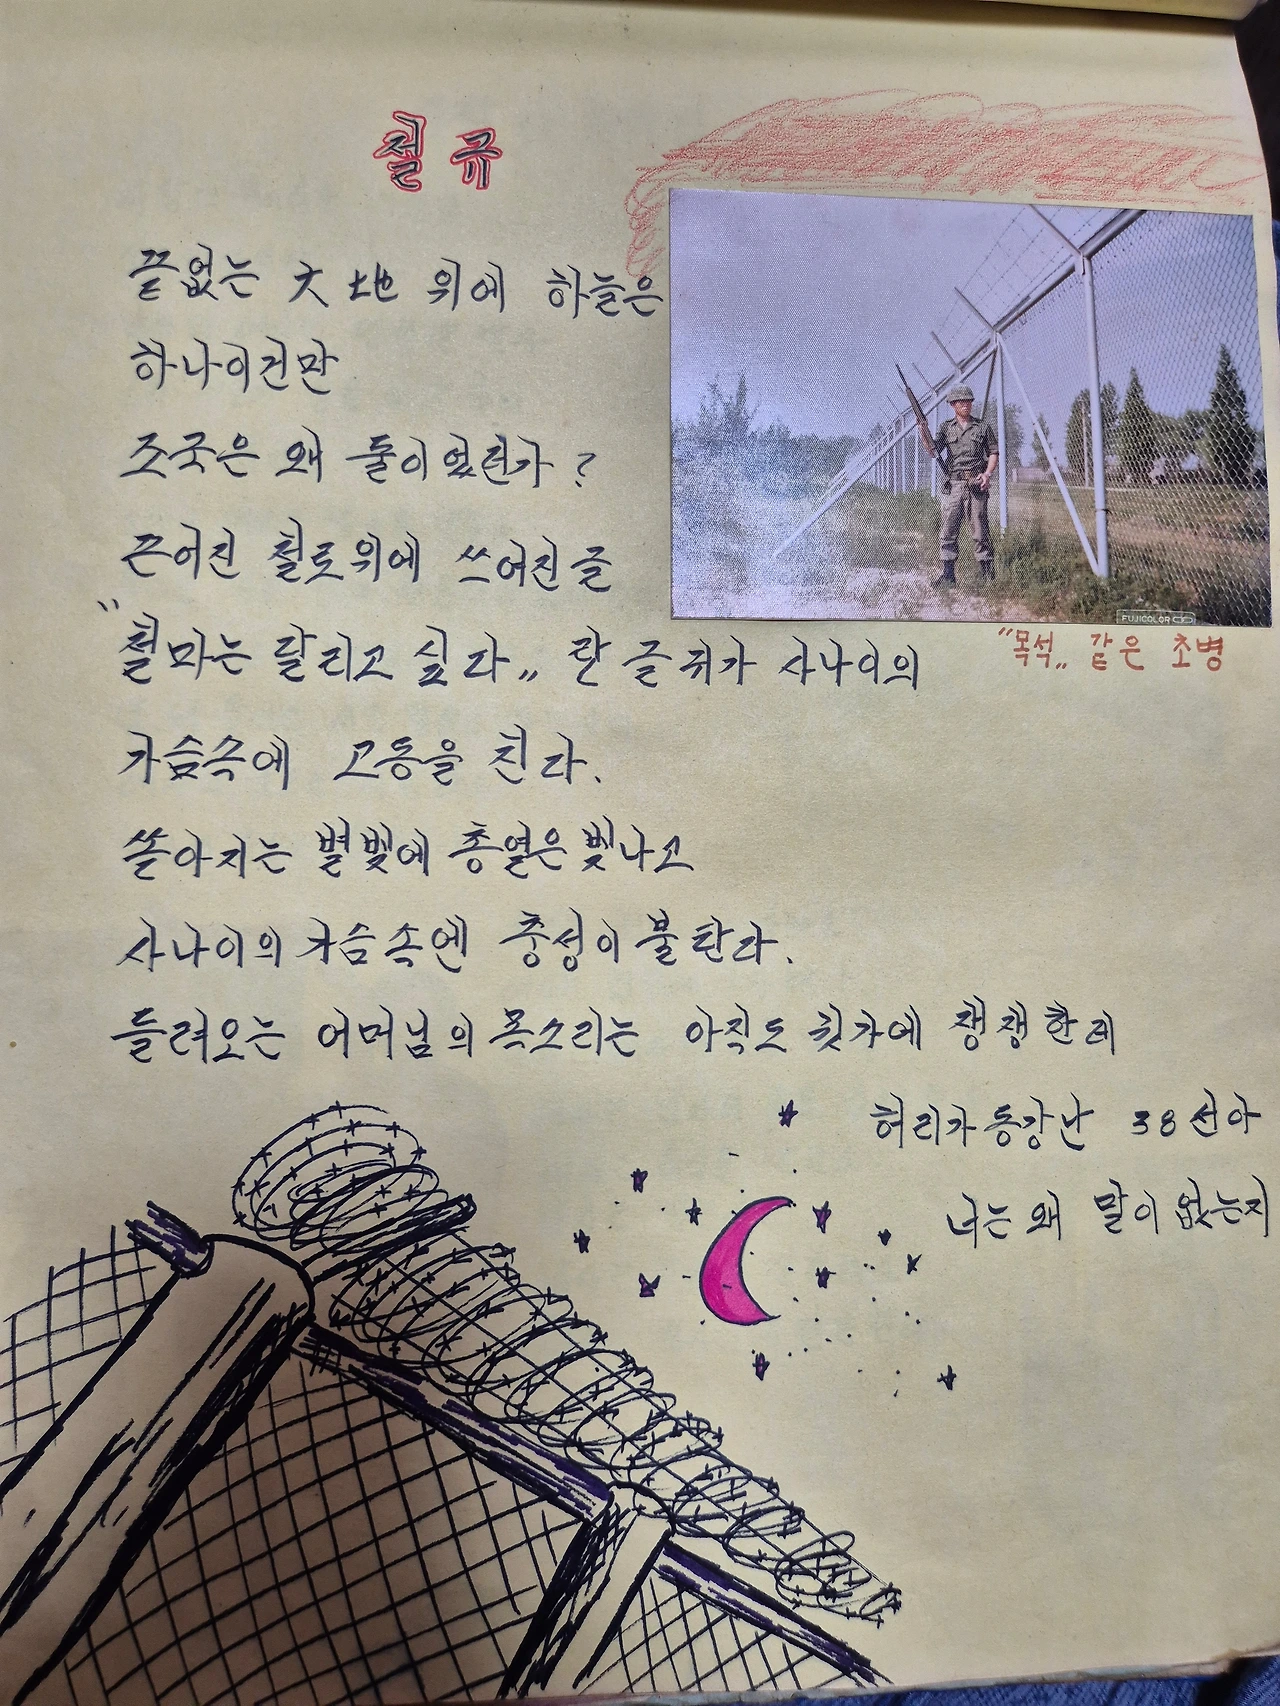 철규
끝없는 大地 위에 하늘은
하나이건만
조국은 왜 둘이었던가?
끈어진 철로위에 쓰여진글
"철마는 달리고 싶다„ 란 글귀가 사나이의
가슴속에 고동을 친다.
쏟아지는 별빛에 총열은빛나고
사나이의 가슴속엔 충성이 불탄다.
들려오는 어머님의 목소리는 아직도 귓가에 쟁쟁한데
허리가 동강난 38선아
너는 왜 말이 없는지
FUJICOLOR
"목석„ 같은 초병